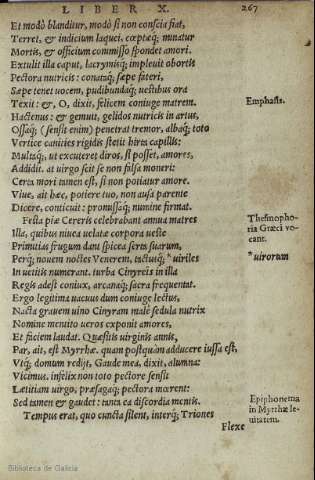 LIBER X. 267
Et modò blanditur, modò si non conscia fiat,
Terret, & indicium laquei, cœptæq; minatur
Mortis, & officium commisso spondet amori.
Extulit illa caput, lacrymisq; impleuit obortis
Pectora nutricis: conataq; sæpe fateri,
Sæpe tenet uocem, pudibundaq; uestibus ora
Texit: &, O, dixit, felicem coniuge matrem.
Emphasis.
Hactenus: & gemuit, gelidos nutricis in artus,
Ossaq; (sensit enim) penetrat tremor, albaq; toto
Vertice canities rigidis stetit hirta capillis:
Multaq; ut excuteret diros, si posset, amores,
Addidit. at uirgo scit se non falsa moneri:
Certa mori tamen est, si non potiatur amore.
Viue, ait hæc, potiere tuo, non ausa parente
Dicere, conticuit: promissaq; numine firmat.
Festa piæ Cereris celebrabant annua matres
Thesmopho-
ria Græci vo-
cant.
Illa, quibus niuea uelatæ corpora ueste
Primitias frugum dant spicea serta suarum,
Perq; nouem noctes Venerem, tactusq; *uiriles
*uirorum
In uetitis numerant. turba Cinyreis in illa
Regis adest coniux, arcanaq; sacra frequentat.
Ergo legitima uacuus dum coniuge lectus,
Nacta grauem uino Cinyram malè sedula nutrix
Nomine mentito ueros exponit amores,
Et faciem laudat. Quæsitis uirginis annis,
Par, ait, est Myrrhæ. quam postquàm adducere iussa est,
Vtq; domum redijt, Gaude mea, dixit, alumna:
Vicimus. infelix non toto pectore sensit
Lætitiam uirgo, præsagaq; pectora mœrent:
Sed tamen & gaudet: tanta est discordia mentis.
Epiphonema
in Myrrhæ le-
uitatem.
Tempus erat, quo cuncta silent, interq; Triones
Flexe
Biblioteca de Galicia